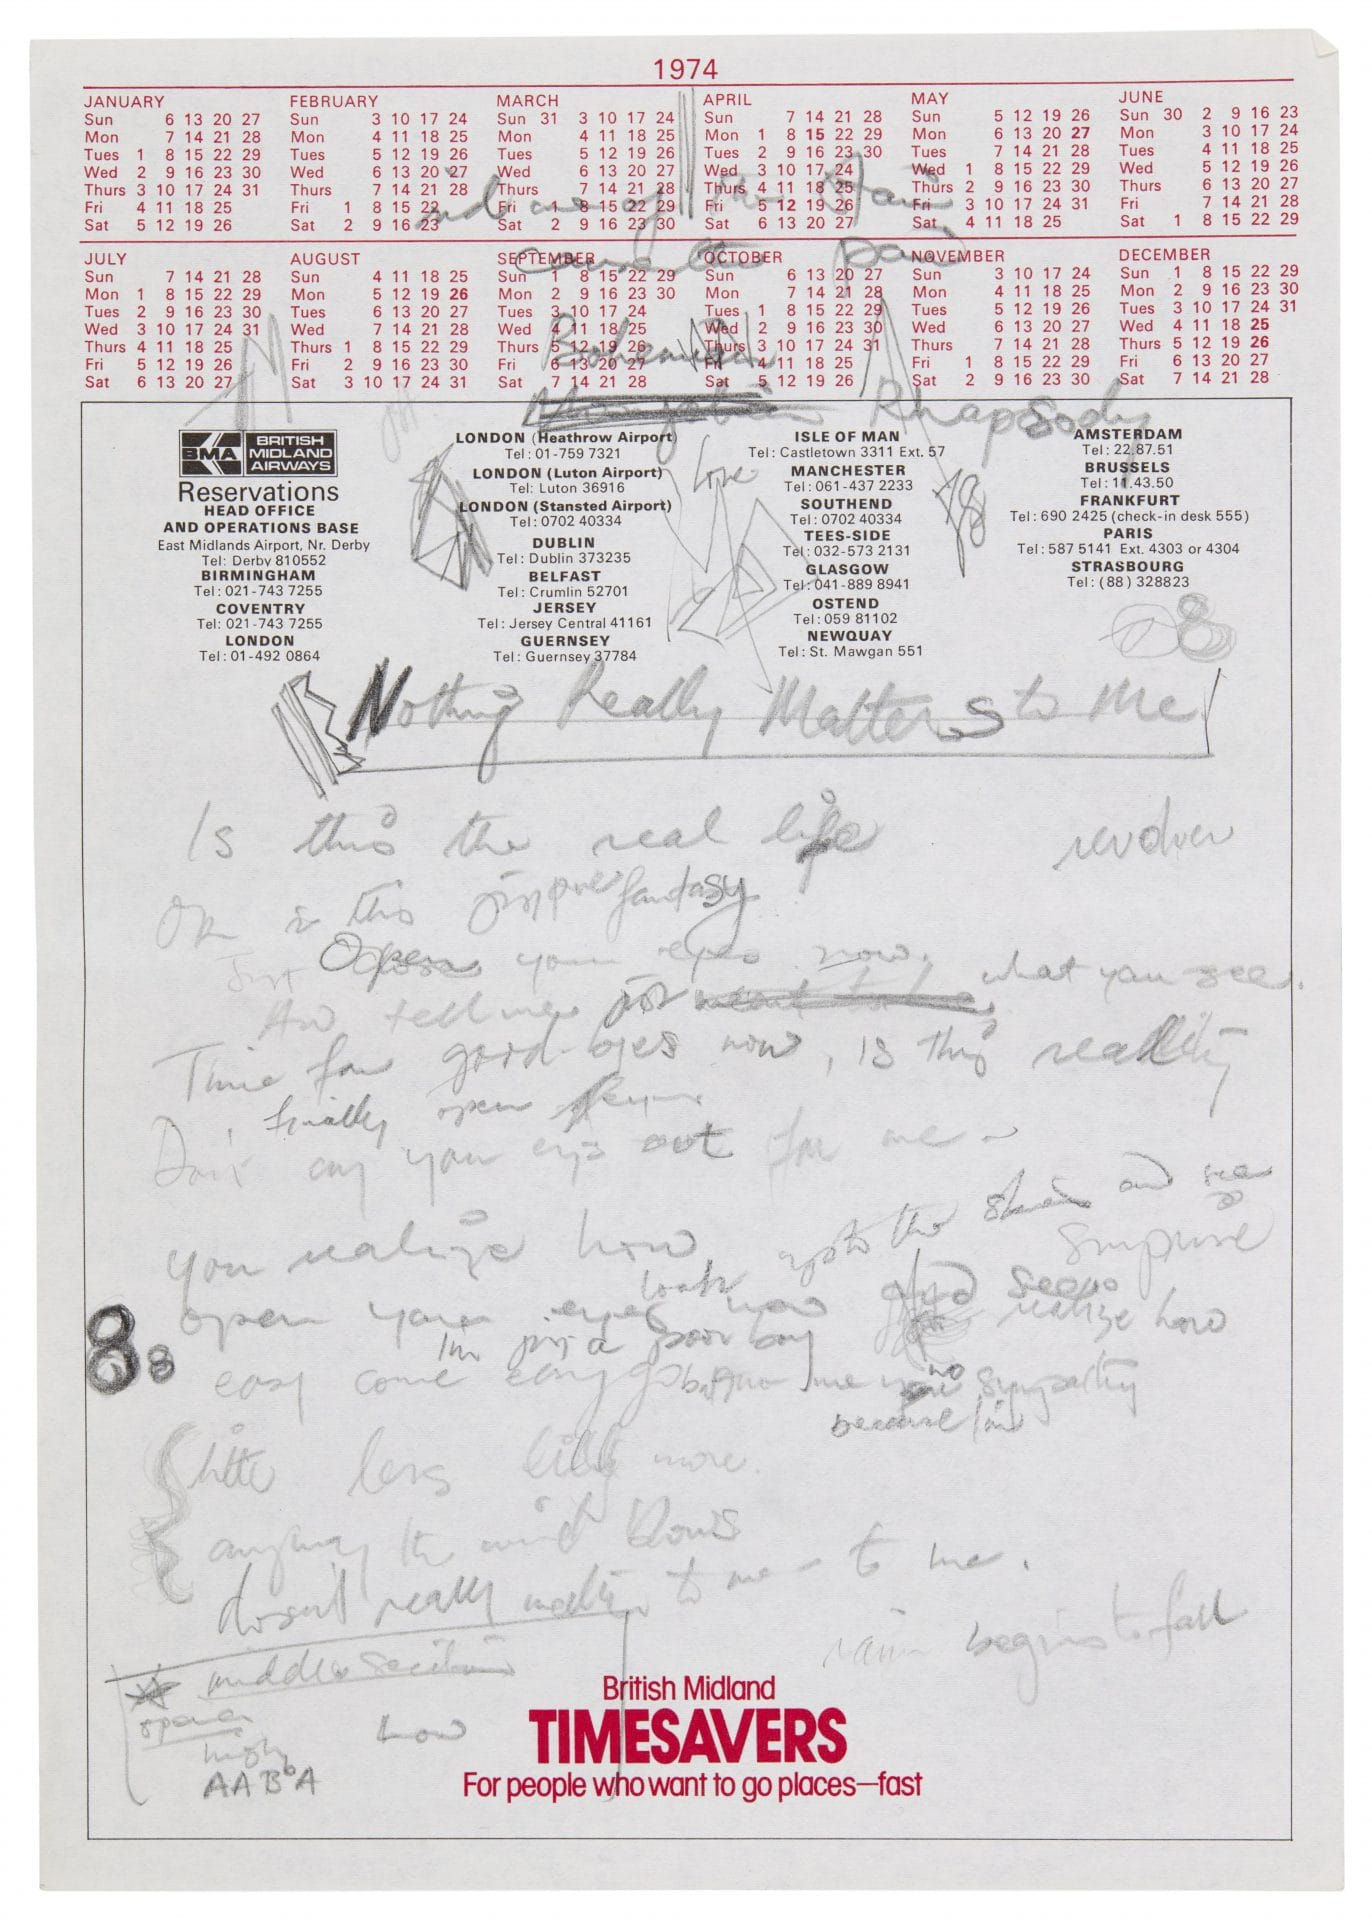 1974
JANUARY
Sun 6 13 20 27
Mon 7 14 21 28
Tues 1 8 15 22 29
Wed 2 9 16 23 30
Thurs 3 10 17 24 31
Fri 4 11 18 25
Sat 5 12 19 26
FEBRUARY
Sun 3 10 17 24
Mon 4 11 18 25
Tues 5 12 19 26
Wed 6 13 20 27
Thurs 7 14 21 28
Fri 1 8 15 22
Sat 2 9 16 23
MARCH
Sun 31 3 10 17 24
Mon 4 11 18 25
Tues 5 12 19 26
Wed 6 13 20 27
Thurs 7 14 21 28
Fri 1 8 15 22 29
Sat 2 9 16 23 30
APRIL
Sun 7 14 21 28
Mon 1 8 15 22 29
Tues 2 9 16 23 30
Wed 3 10 17 24
Thurs 4 11 18 25
Fri 5 12 19 26
Sat 6 13 20 27
MAY
Sun 5 12 19 26
Mon 6 13 20 27
Tues 7 14 21 28
Wed 1 8 15 22 29
Thurs 2 9 16 23 30
Fri 3 10 17 24 31
Sat 4 11 18 25
JUNE
Sun 30 2 9 16 23
Mon 3 10 17 24
Tues 4 11 18 25
Wed 5 12 19 26
Thurs 6 13 20 27
Fri 7 14 21 28
Sat 1 8 15 22 29
of the
cause the pain
JULY
Sun 7 14 21 28
Mon 1 8 15 22 29
Tues 2 9 16 23 30
Wed 3 10 17 24 31
Thurs 4 11 18 25
Fri 5 12 19 26
Sat 6 13 20 27
AUGUST
Sun 4 11 18 25
Mon 5 12 19 26
Tues 6 13 20 27
Wed 7 14 21 28
Thurs 1 8 15 22 29
Fri 2 9 16 23 30
Sat 3 10 17 24 31
SEPTEMBER
Sun 1 8 15 22 29
Mon 2 9 16 23 30
Tues 3 10 17 24
Wed 4 11 18 25
Thurs 5 12 19 26
Fri 6 13 20 27
Sat 7 14 21 28
OCTOBER
Sun 6 13 20 27
Mon 7 14 21 28
Tues 1 8 15 22 29
Wed 2 9 16 23 30
Thurs 3 10 17 24 31
Fri 4 11 18 25
Sat 5 12 19 26
NOVEMBER
Sun 3 10 17 24
Mon 4 11 18 25
Tues 5 12 19 26
Wed 6 13 20 27
Thurs 7 14 21 28
Fri 1 8 15 22 29
Sat 2 9 16 23 30
DECEMBER
Sun 1 8 15 22 29
Mon 2 9 16 23 30
Tues 3 10 17 24 31
Wed 4 11 18 25
Thurs 5 12 19 26
Fri 6 13 20 27
Sat 7 14 21 28
Bohemian
Mongolian Rhapsody
BMA BRITISH MIDLAND AIRWAYS
Reservations
HEAD OFFICE
AND OPERATIONS BASE
East Midlands Airport, Nr. Derby
Tel: Derby 810552
BIRMINGHAM
Tel: 021-743 7255
COVENTRY
Tel: 021-743 7255
LONDON
Tel: 01-492 0864
LONDON (Heathrow Airport)
Tel: 01-759 7321
LONDON (Luton Airport)
Tel: Luton 36916
LONDON (Stansted Airport)
Tel: 0702 40334
DUBLIN
Tel: Dublin 373235
BELFAST
Tel: Crumlin 52701
JERSEY
Tel: Jersey Central 41161
GUERNSEY
Tel: Guernsey 37784
love
ISLE OF MAN
Tel: Castletown 3311 Ext. 57
MANCHESTER
Tel: 061-437 2233
SOUTHEND
Tel: 0702 40334
TEES-SIDE
Tel: 032-573 2131
GLASGOW
Tel: 041-889 8941
OSTEND
Tel: 059 81102
NEWQUAY
Tel: St. Mawgan 551
AMSTERDAM
Tel: 22.87.51
BRUSSELS
Tel: 11.43.50
FRANKFURT
Tel: 690 2425 (check-in desk 555)
PARIS
Tel: 587 5141 Ext. 4303 or 4304
STRASBOURG
Tel: (88) 328823
8
Nothing Really Matters to Me
Is this the real life
revolver
Or is this just pure fantasy
Just Open your eyes now.
And tell me what you see.
Time for good-byes now, is this reality
finally open
Don't cry your eyes out for me
up to the skies and see
you realize how surprise
look
open your eyes now and realize how
I'm just a poor boy
8 8
easy come easy go no sympathy
because I'm
little less little more.
anyway the wind blows
doesn't really matter to me - to me.
rain begins to fall
middle section
opera
high how
AAB♭A
British Midland
TIMESAVERS
For people who want to go places—fast